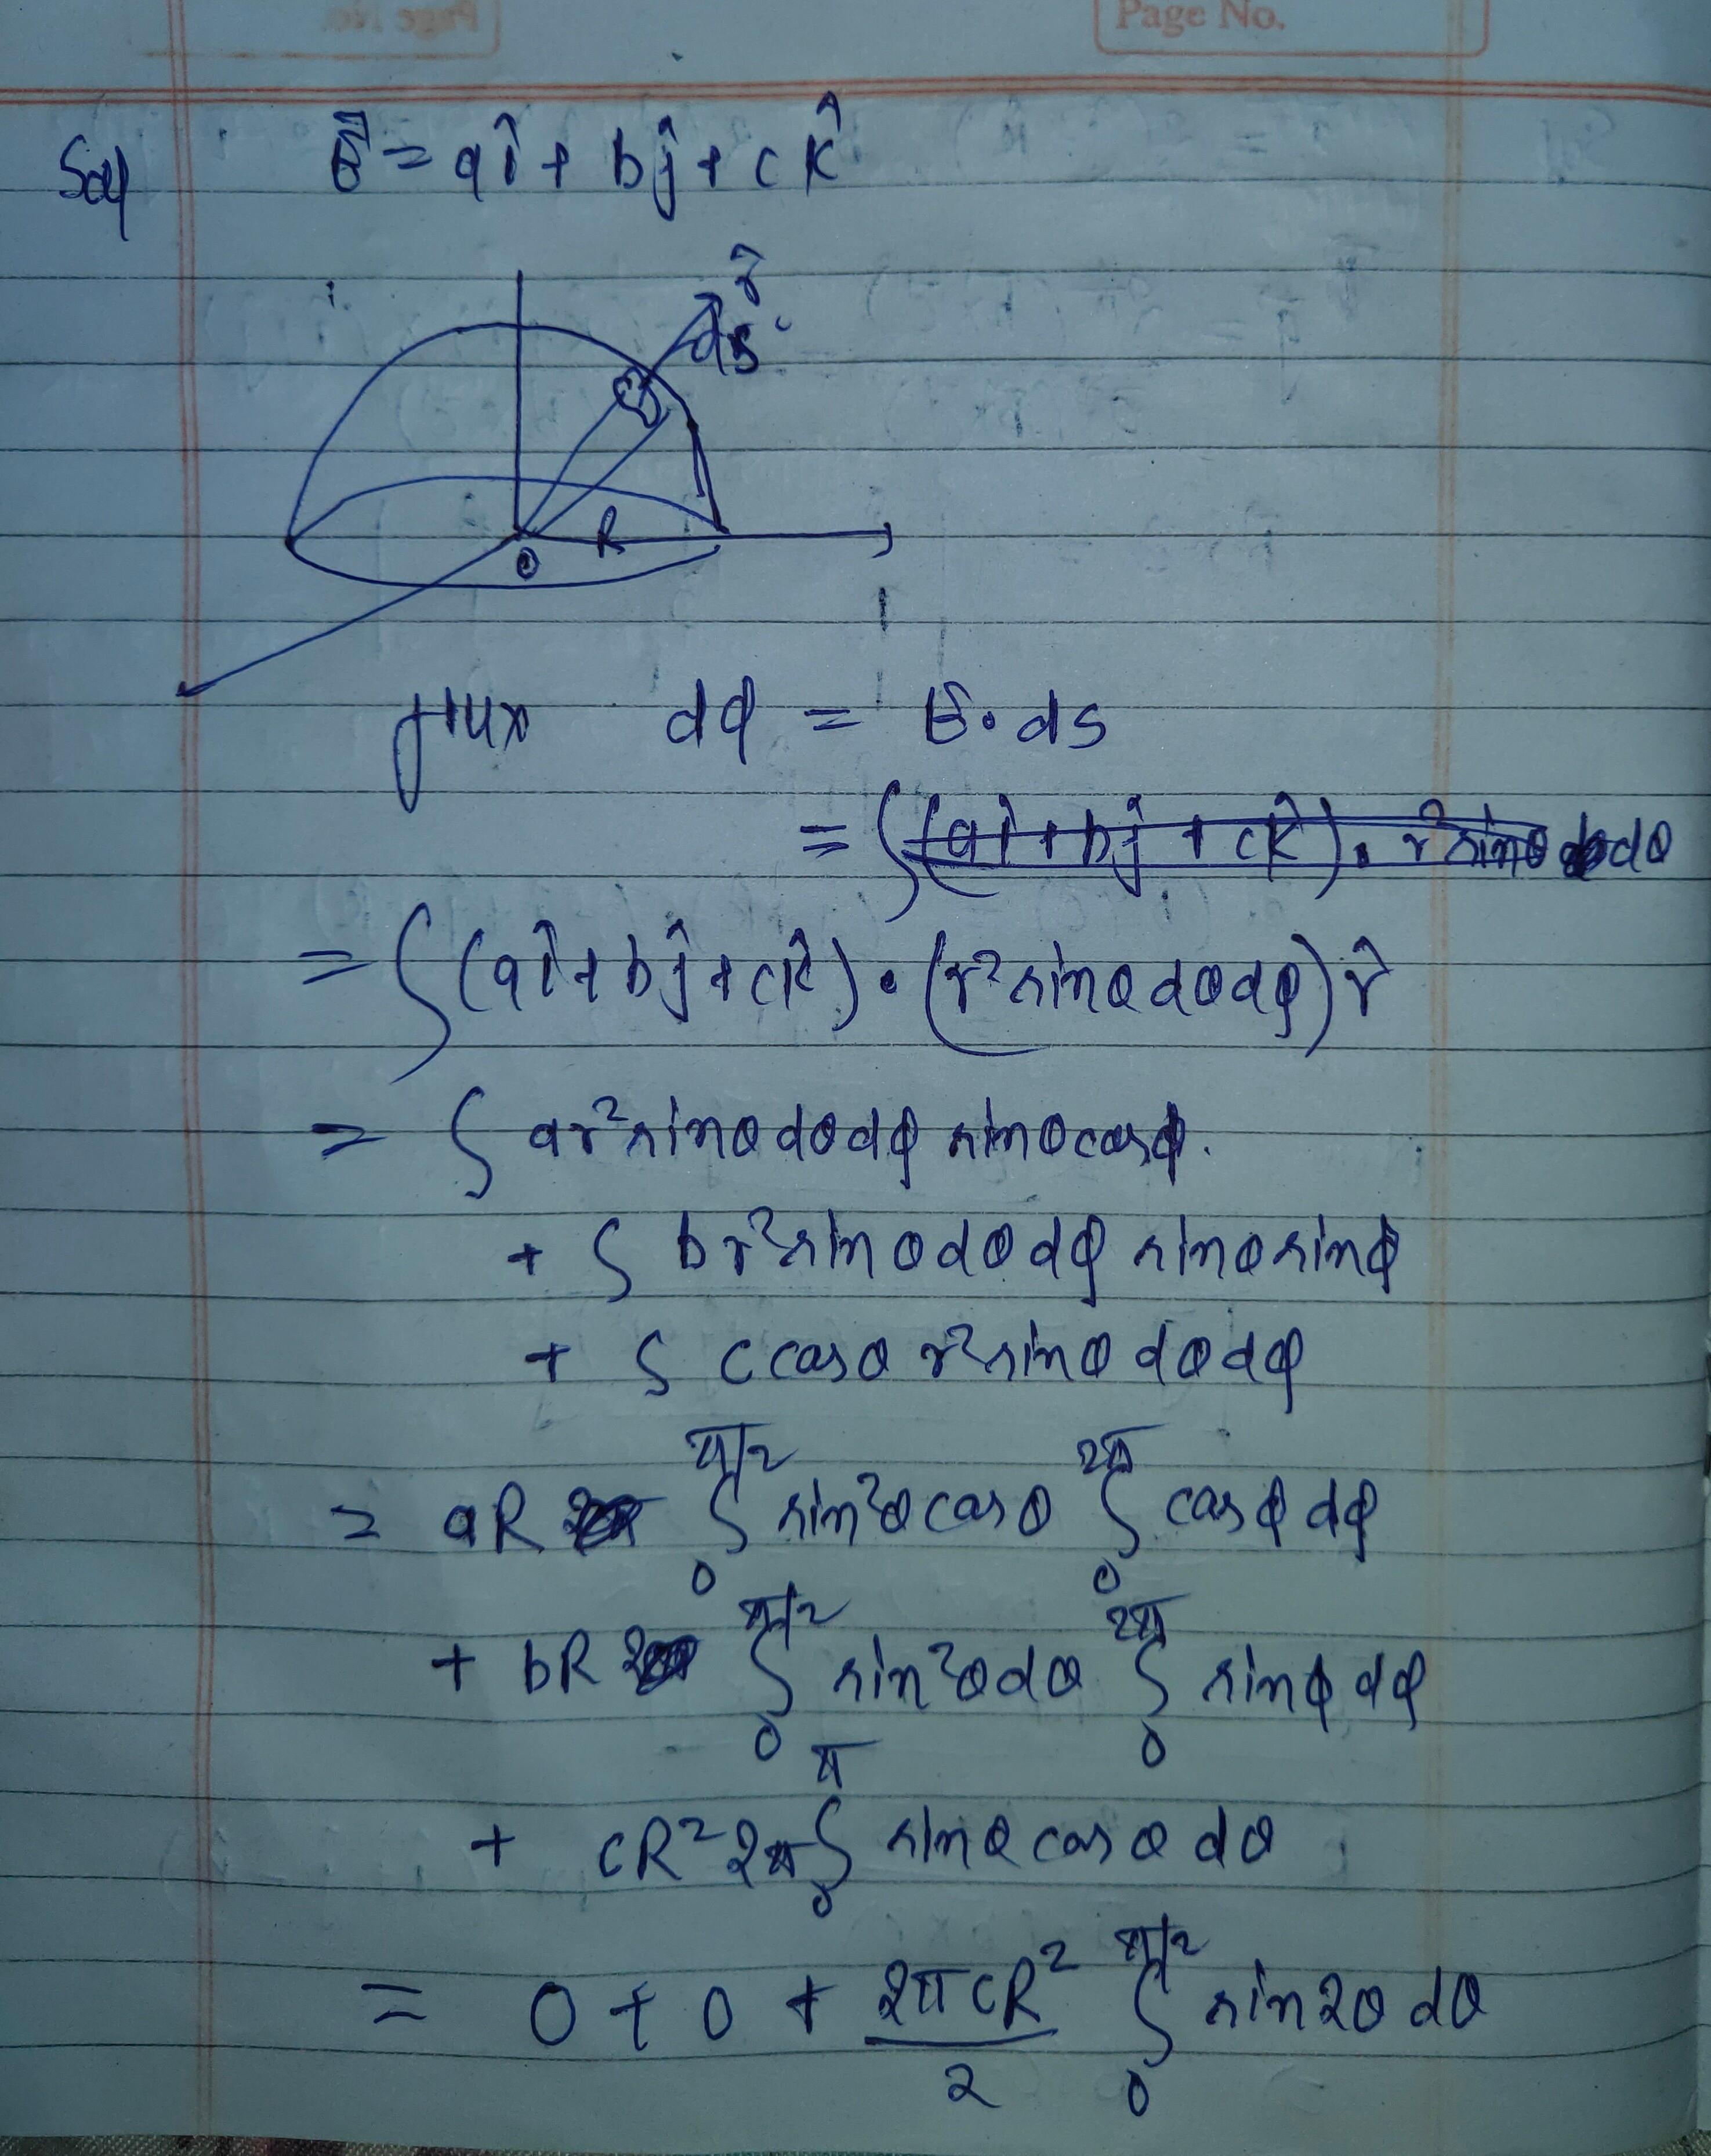 Page No.
Sol
E⃗ = aî + bĵ + ck̂
r̂
ds
R
O
flux dφ = E⃗·ds
= ∫(aî + bĵ + ck̂)·r²sinθ dθ
= ∫(aî + bĵ + ck̂)·(r²sinθdθdφ)r̂
= ∫ ar²sinθdθdφ sinθcosφ.
+ ∫ br²sinθdθdφ sinθsinφ
+ ∫ c cosθ r²sinθdθdφ
= aR ∫₀^(π/2) sin²θcosθ ∫₀^(2π) cosφdφ
+ bR ∫₀^(π/2) sin²θdθ ∫₀^(2π) sinφdφ
+ cR²2π∫₀^π sinθcosθdθ
= 0 + 0 + 2πcR²/2 ∫₀^(π/2) sin2θdθ